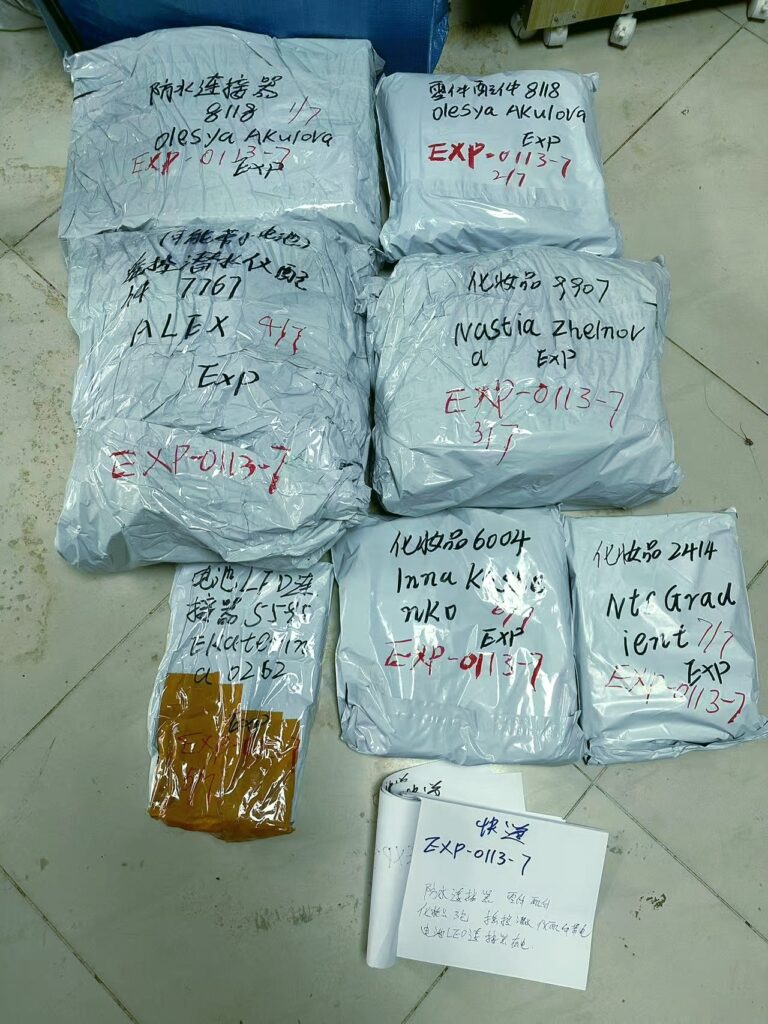 防水连接器
8118 1/7
Olesya Akulova
EXP-0113-7
Exp
零件配件 8118
Olesya Akulova
Exp
EXP-0113-7
2/7
(可能带小电池)
遥控潜水仪配
件 7767
ALEX 4/7
Exp
EXP-0113-7
化妆品 9907
Nastia Zhelnov
a Exp
EXP-0113-7
3/7
电池LED连
接器 5595
Ekaterin
a 0262
Exp
EXP-0113-7
5/7
化妆品 6004
Inna
nko 6/7
EXP
EXP-0113-7
化妆品 2414
Nts Grad
ient 7/7
EXP
EXP-0113-7
快递
EXP-0113-7
防水连接器 零件配件
化妆品3包 遥控潜水仪配件带电
电池LED连接器